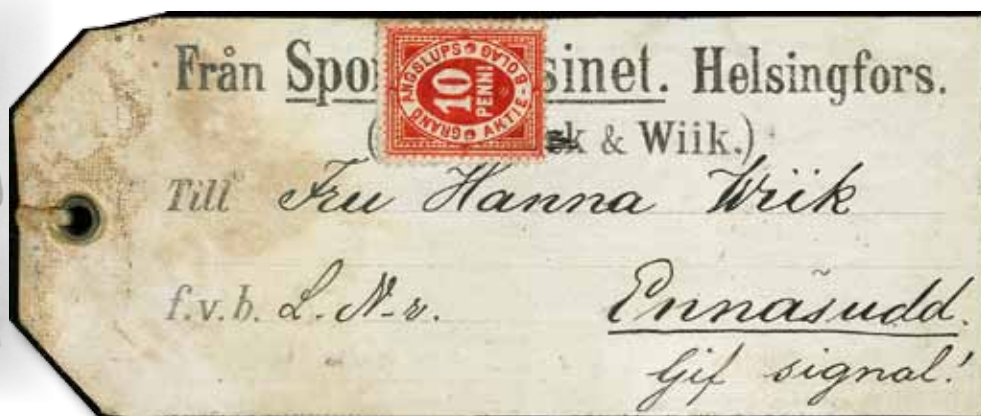 Från Spo sinet. Helsingfors.
GRANÖ ÅNGSLUPS AKTIE-BOLAG
10
PENNI
( k & Wiik.)
Till Fru Hanna Wiik
f.v.b. L. N-r. Ennäsudd.
Gif signal!